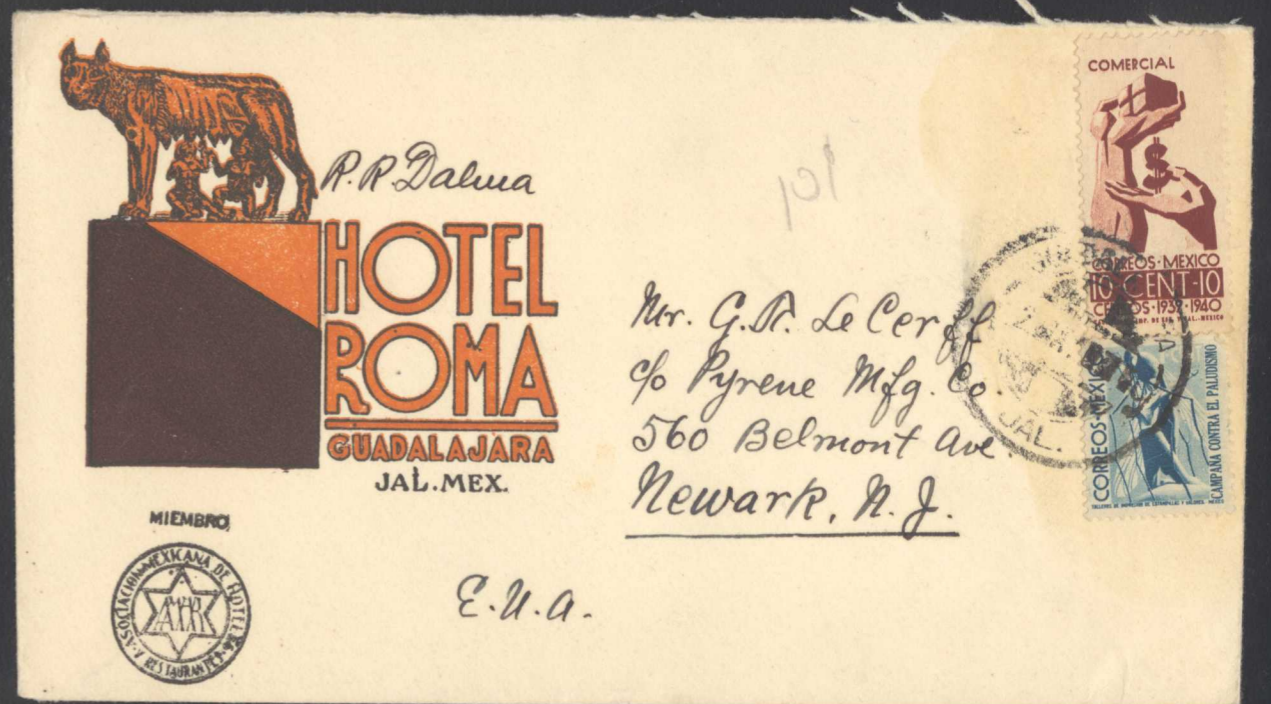 R. R. Dalma
HOTEL
ROMA
GUADALAJARA
JAL. MEX.
MIEMBRO
ASOCIACION MEXICANA DE HOTELES
Y RESTAURANTES
AMHR
101
Mr. G. R. Le Cerff
c/o Pyrene Mfg. Co.
560 Belmont Ave.
Newark, N. J.
E.U.A.
COMERCIAL
$
CORREOS·MEXICO
10·CENT·10
CENSOS·1939·1940
JAL.
CORREOS·MEXICO
CAMPAÑA CONTRA EL PALUDISMO
TALLERES DE IMPRESION DE ESTAMPILLAS Y VALORES MEXICO